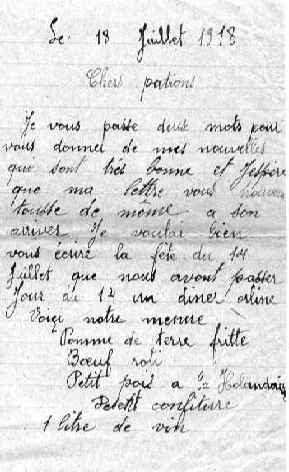 Le 18 Juillet 1918
Chers patrons
Je vous passe deux mots pour
vous donner de mes nouvelles
que sont très bonne et J'espère
que ma lettre vous
tousse de même a son
arriver Je voulai bien
vous écrire la fête du 14
Juillet que nous avont passer
Jour du 14 un diner
Voici notre menue
Pomme de terre fritte
Bœuf roti
Petit pois a la Holandais
confiture
1 litre de vin